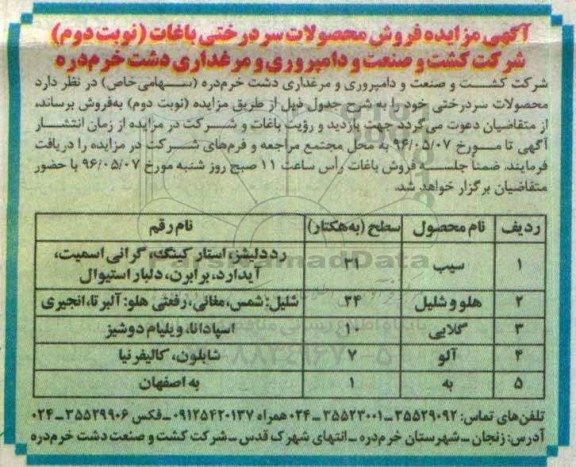 آگهی مزایده فروش محصولات سردرختی باغات (نوبت دوم)
شرکت کشت و صنعت و دامپروری و مرغداری دشت خرم‌دره
شرکت کشت و صنعت و دامپروری و مرغداری دشت خرم‌دره (سهامی خاص) در نظر دارد
محصولات سردرختی خود را به شرح جدول ذیل از طریق مزایده (نوبت دوم) به‌فروش برساند،
از متقاضیان دعوت می‌گردد جهت بازدید و رؤیت باغات و شرکت در مزایده از زمان انتشار
آگهی تا مورخ ۹۶/۰۵/۰۷ به محل مجتمع مراجعه و فرم‌های شرکت در مزایده را دریافت
فرمایند. ضمناً جلسه فروش باغات رأس ساعت ۱۱ صبح روز شنبه مورخ ۹۶/۰۵/۰۷ با حضور
متقاضیان برگزار خواهد شد.
ردیف نام محصول سطح (به‌هکتار) نام رقم
۱ سیب ۳۱ رد دلیشز، استار کینگ، گرانی اسمیت،
آیدارد، برابرن، دلبار استیوال
۲ هلو و شلیل ۳۴ شلیل: شمس، مغانی، رفعتی هلو: آلبرتا، انجیری
۳ گلابی ۱۰ اسپادانا، ویلیام دوشیز
۴ آلو ۷ شابلون، کالیفرنیا
۵ به ۱ به اصفهان
تلفن‌های تماس: ۳۵۵۲۹۰۹۲ ـ ۳۵۵۲۳۰۰۱ ـ ۰۲۴ همراه ۰۹۱۲۵۴۲۰۱۳۷ ـ فکس ۳۵۵۲۹۹۰۶ ـ ۰۲۴
آدرس: زنجان ـ شهرستان خرم‌دره ـ انتهای شهرک قدس ـ شرکت کشت و صنعت دشت خرم‌دره